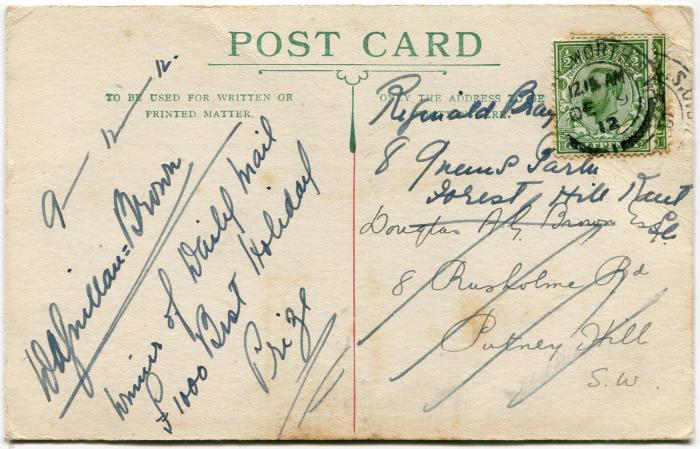 POST CARD
TO BE USED FOR WRITTEN OR
PRINTED MATTER.
ONLY THE ADDRESS TO BE
HERE.
9 — 12 — 12.
Brown
Winner of Daily Mail
£1000 Best Holiday
Prize
Reginald Bray
8 Queens Park
Forest Hill Kent
Douglas A G Brown Esq
8 Rusholme Rd
Putney Hill
S.W.
12.15 AM
DE 9
12